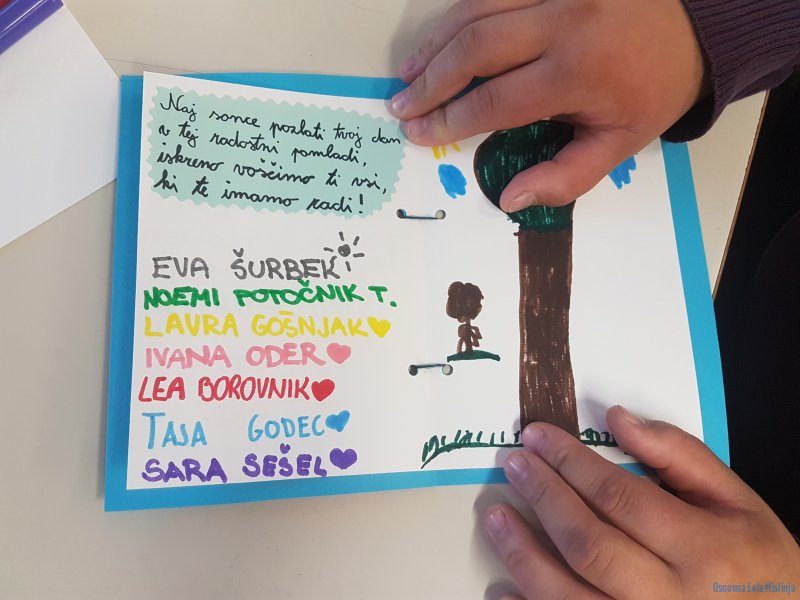 Naj sonce pozlati tvoj dan
v tej radostni pomladi,
iskreno voščimo ti vsi,
ki te imamo radi!
EVA ŠURBEK
NOEMI POTOČNIK T.
LAVRA GOŠNJAK
IVANA ODER
LEA BOROVNIK
TAJA GODEC
SARA SEŠEL
Osnovna šola Mislinja